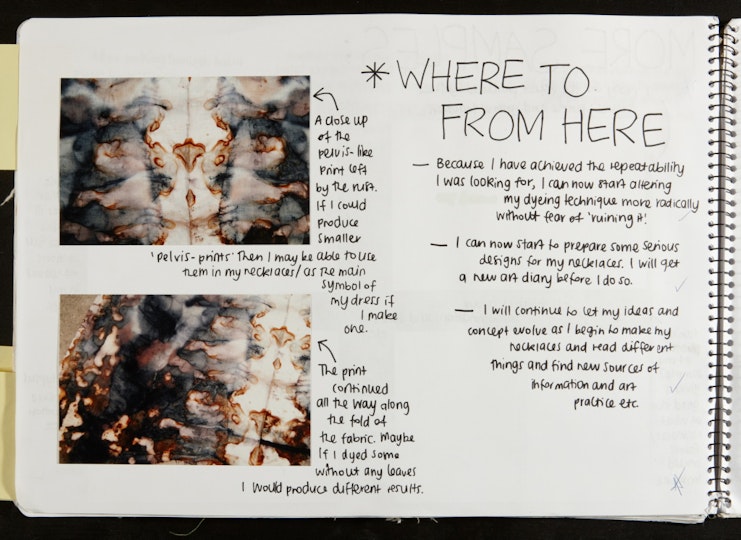 *WHERE TO
FROM HERE
— Because I have achieved the repeatability
I was looking for, I can now start altering
my dyeing technique more radically
without fear of 'ruining it!'
— I can now start to prepare some serious
designs for my necklaces. I will get
a new art diary before I do so.
— I will continue to let my ideas and
concept evolve as I begin to make my
necklaces and read different
things and find new sources of
information and art
practice etc.
A close up
of the
pelvis-like
print left
by the rust.
If I could
produce
smaller
'pelvis-prints' then I may be able to use
them in my necklaces/as the main
symbol of
my dress if
I make
one.
The print
continued
all the way along
the fold of
the fabric. Maybe
If I dyed some
without any leaves
I would produce different results.